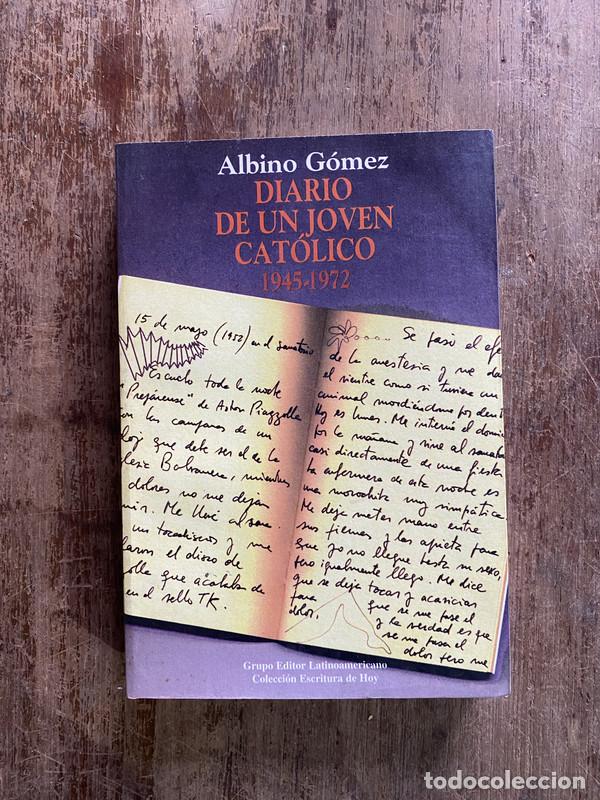 Albino Gómez
DIARIO
DE UN JOVEN
CATÓLICO
1945-1972
15 de mayo (1952) en el sanatorio
Escucho toda la noche
"Prepárense" de Astor Piazzolla
con las campanas de un
loj que debe ser el de la
lesia Balvanera, mientras
dolores no me dejan
mir. Me llevé al sana
un tocadiscos y me
laron el disco de
olla que acababa de
en el sello TK.
Se pasó el efe
de la anestesia y me due
el vientre como si tuviera un
animal mordiéndome por dent
Hoy es lunes. Me interné el domin
por la mañana y vine al sanato
casi directamente de una fiesta
ta enfermera de esta noche es
una morochita muy simpática
Me deja meter mano entre
sus piernas y las aprieta para
que yo no llegue hasta su sexo,
pero igualmente llego. Me dice
que se deja tocar y acariciar
para que se me pase el
dolor, y la verdad es que
se me pasa el
dolor pero me
Grupo Editor Latinoamericano
Colección Escritura de Hoy
todocoleccion